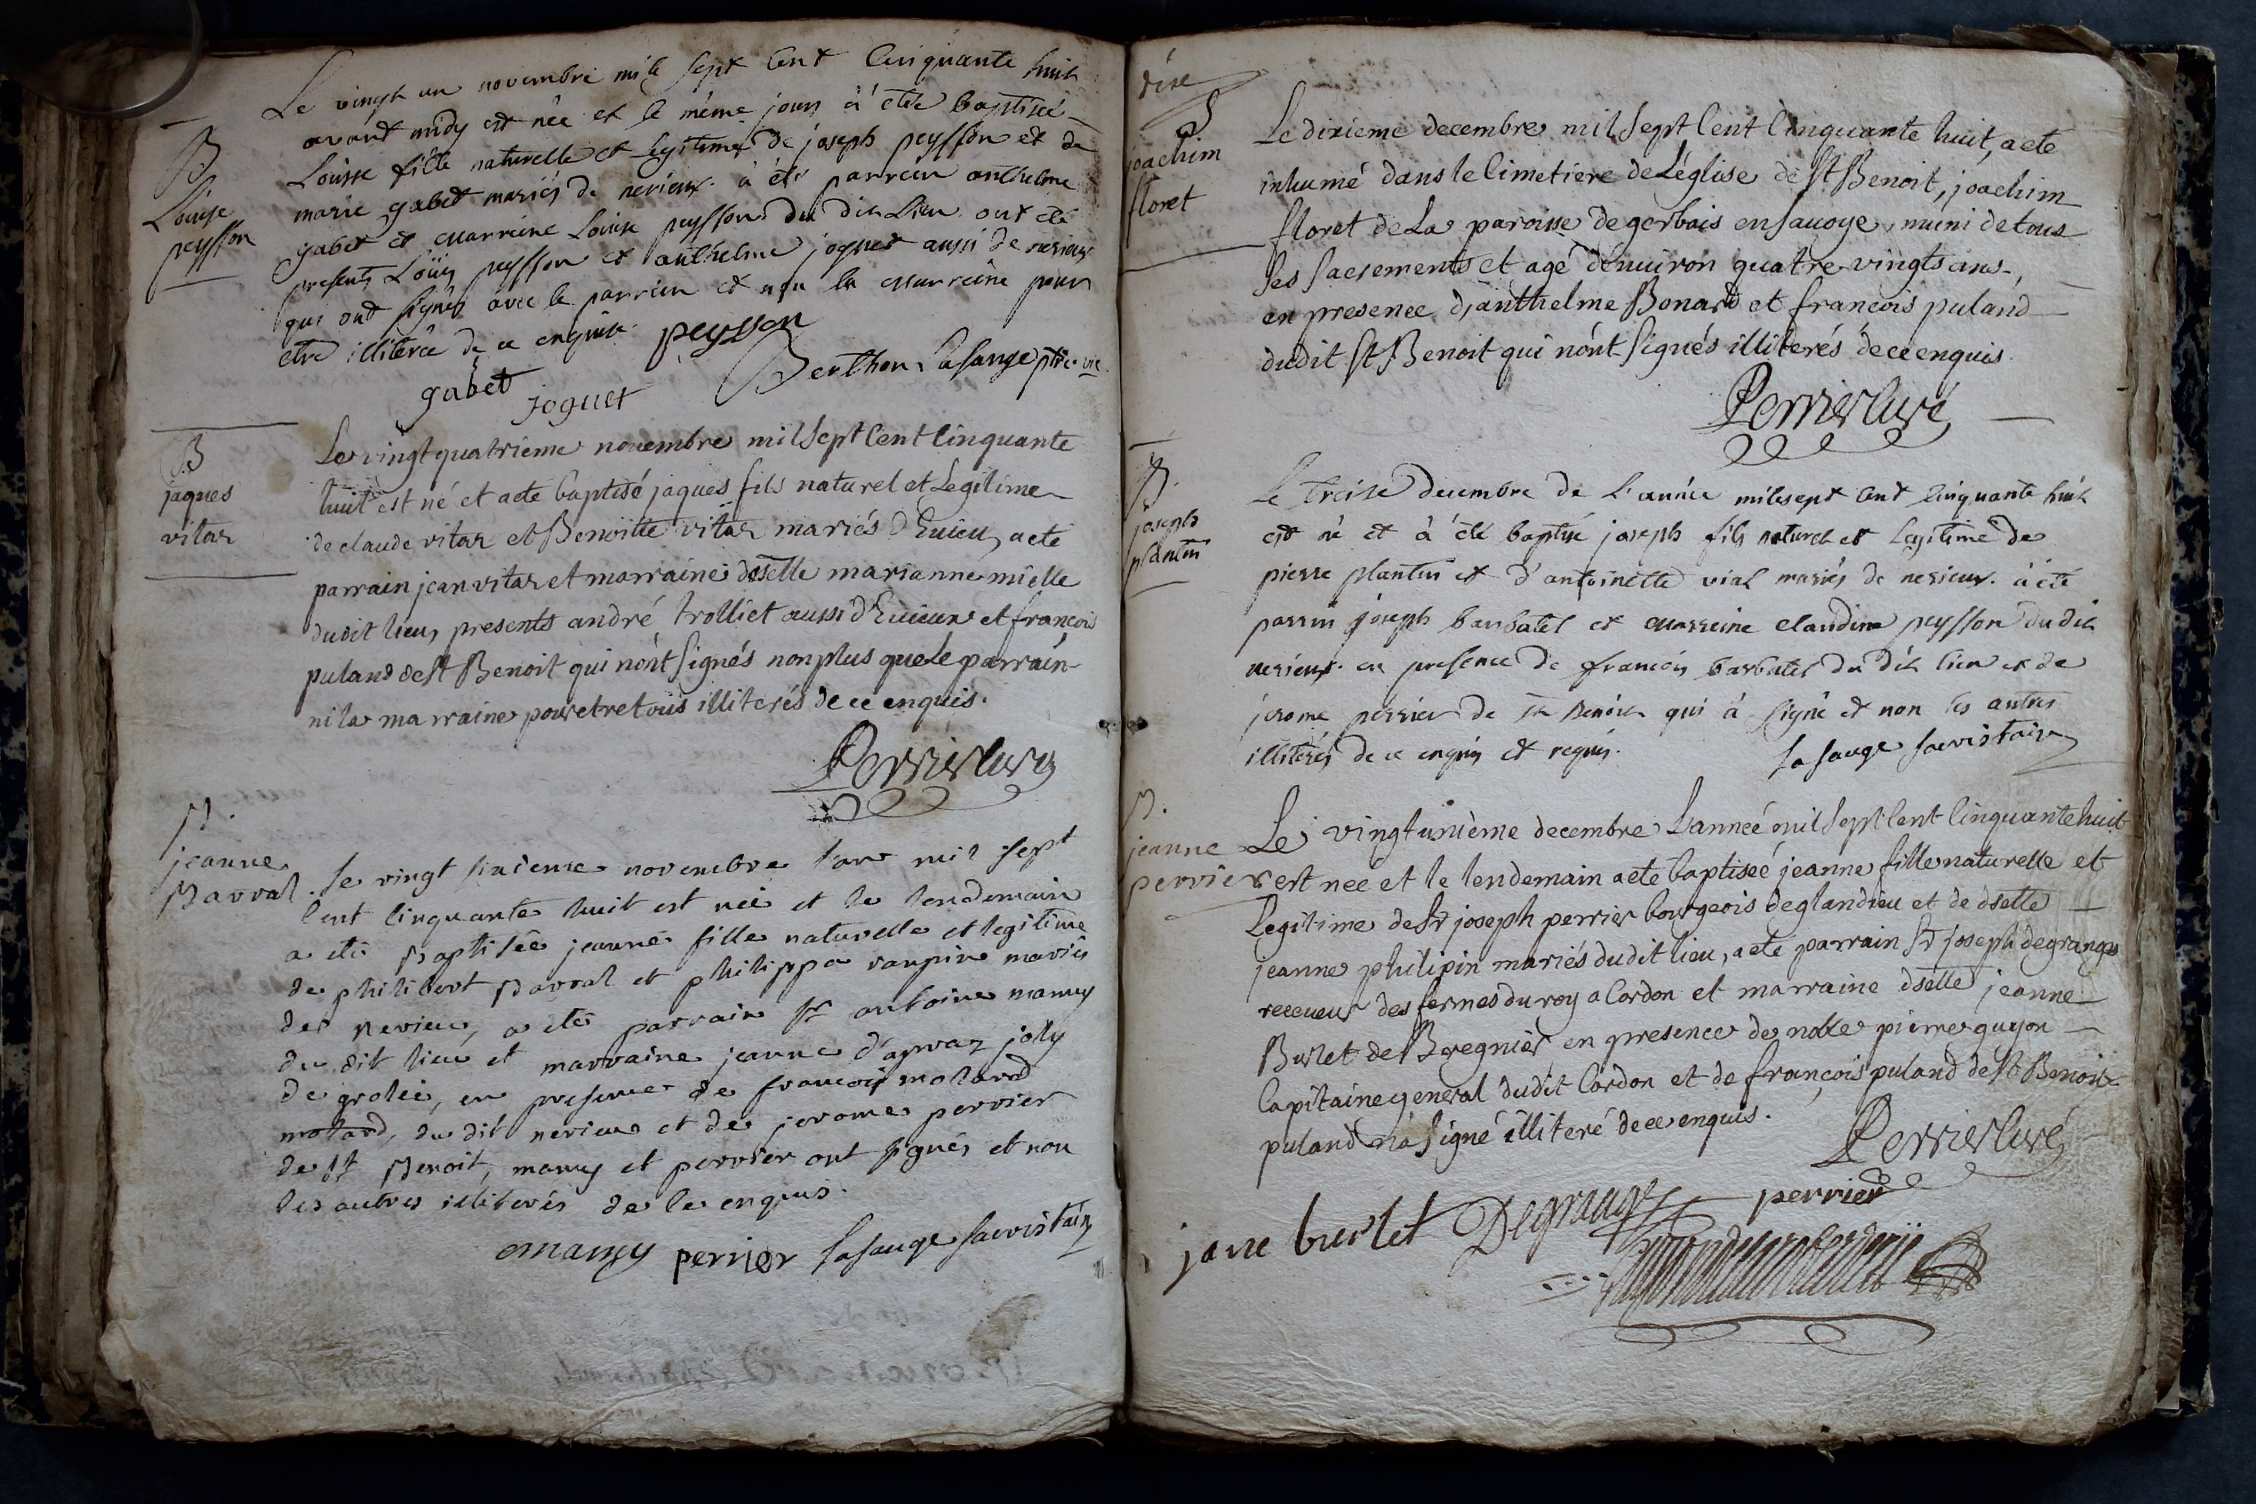 Le vingt un novembre mile sept cent cinquante huit
avant midy est née et le même jours à été baptiseé
B
Louise
peysson
Louise fille naturelle et legitime de joseph peysson et de
marie gabet mariés de nerieux. à été parrein anthelme
gabet et marreine Louise peysson du dit Lieu ont été
presents Loüis peysson et anthelme joguet aussi de nerieux
qui ont signés avec le parrein et non la marreine pour
etre illiterée de ce enquise. peysson
gabet joguet Berthon Lasauge ptre vic.
B
jaques
vitar
Le vingt quatrieme novembre mil sept cent cinquante
huit est né et a eté baptisé jaques fils naturel et Legitime
de claude vitar et Benoitte vitar mariés d'Euieu, a eté
parrain jean vitar et marraine dselle marianne mielle
dudit lieu, presents andré trolliet aussi d'Euieux et francois
puland de st Benoit qui n'ont signés non plus que le parrain
ni la marraine pour etre tous illiterés de ce enquis.
Perrier curé
B.
jeanne
Barral.
Le vingt sixieme novembre l'an mil sept
cent cinquante huit est née et le lendemain
a eté Baptisée jeanne fille naturelle et legitime
de philibert Barral et philippa vaupin mariés
de nerieu, a eté parrain Sr antoine mamy
du dit lieu et marraine jeanne d'apvaz joly
de grolée, en presence de francois molard
molard, du dit nerieu et de jerome perrier
de st Benoit, mamy et perrier ont signés et non
les autres illiterés de ce enquis.
mamy perrier Lasauge sacristain
dixe
S
joachim
floret
Le dixieme decembre mil sept cent cinquante huit, a eté
inhumé dans le cimetiere de L'église de st Benoit, joachim
floret de La paroisse de gerbais en savoye, muni de tous
ses sacrements et agé d'enuiron quatre vingts ans,
en presence d'anthelme Bonard et francois puland
dudit st Benoit qui n'ont signés illiterés de ce enquis
Perrier curé
B.
joseph
plantin
Le treise decembre de L'année mile sept cent cinquante huit
est né et à été baptisé joseph fils naturel et Legitime de
pierre plantin et d'antoinette vial mariés de nerieux. à été
parrin joseph barbatel et marreine claudine peysson du dit
nerieux. en presence de francois barbatel du dit lieu et de
jerome perrier de st Benoit qui à signé et non les autres
illiterés de ce enquis et requis.
Lasauge sacristain
B.
jeanne
perrier
Le vingt unième decembre L'anneé mil sept cent cinquante huit
est neé et le lendemain a eté baptiseé jeanne fille naturelle et
Legitime de Sr joseph perrier bourgeois de glandieu et de dselle
jeanne philipin mariés dudit lieu, a eté parrain Sr joseph degranges
receueur des fermes du roy a Cordon et marraine dselle jeanne
Burlet de Bregnier en presence de noble pierre guyon
Capitaine general dudit Cordon et de françois puland de st Benoit
puland n'a signé illiteré de ce enquis.
Perrier curé
jane burlet Degrange perrier